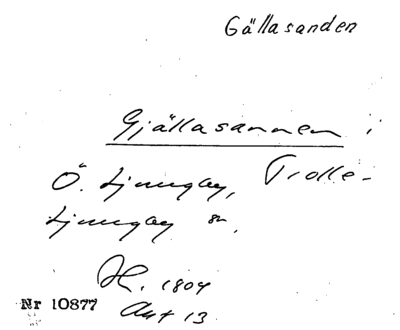 Gällasanden
Gjällasannen i
Ö. Ljungby, Trolle-
Ljungby sn.
H. 1804
Nr 10877 Akt 13